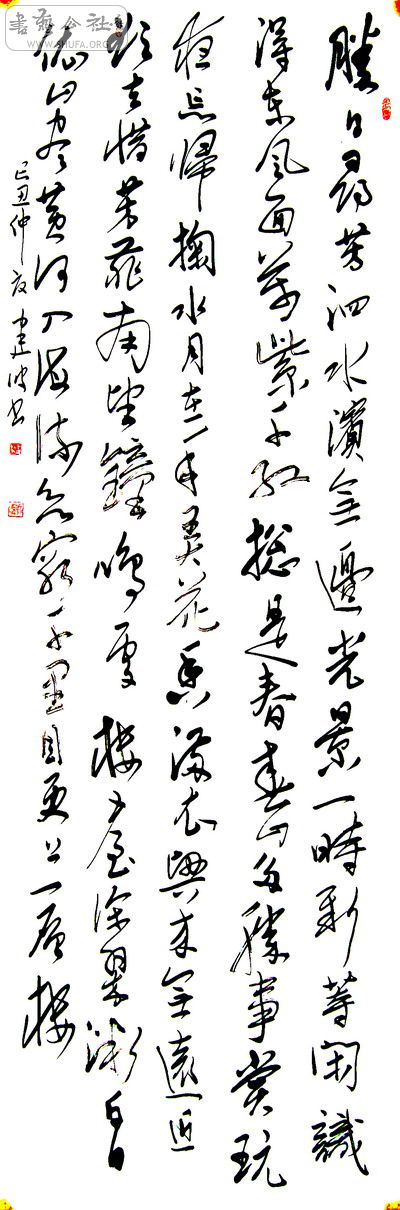 勝日尋芳泗水濱無邊光景一時新等閑識
得東風面萬紫千紅總是春春山多勝事賞玩
夜忘歸掬水月在手弄花香滿衣興來無遠近
欲去惜芳菲南望鐘鳴處樓臺深翠微白日
依山盡黃河入海流欲窮千里目更上一層樓
己丑仲夏建波书
書藝公社
WWW.SHUFA.ORG